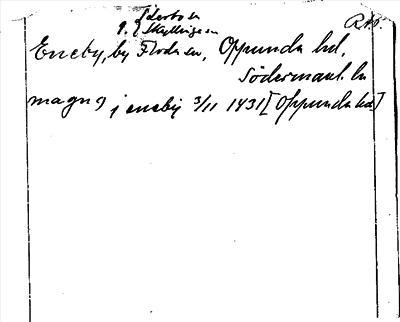 Österbo sn
RAp.
l. Skyllinge sn
Eneby, by Floda sn, Oppunda hd,
Södermanl. ln
magn9 j eneby 3/11 1431 [Oppunda hd]